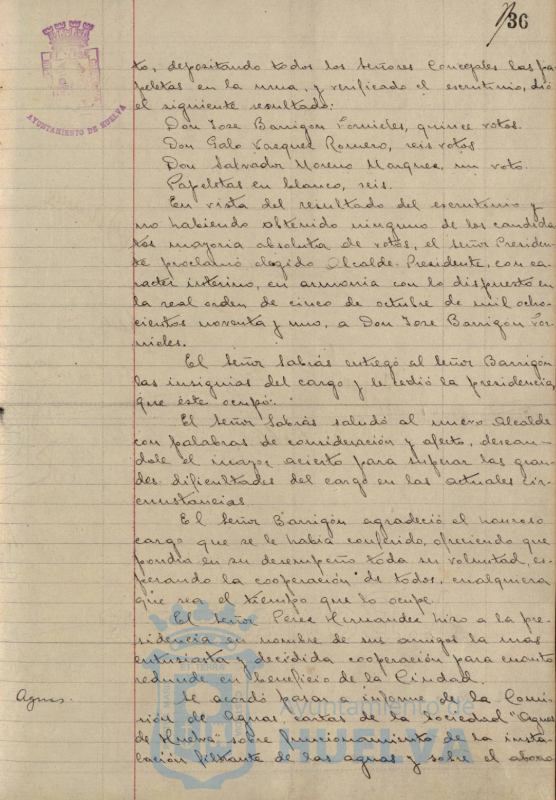 36
AYUNTAMIENTO DE HUELVA
to, depositando todos los Señores Concejales las pa-
peletas en la urna, y verificado el escrutinio, dió
el siguiente resultado:
Don Jose Barrigon Fornieles, quince votos.
Don Galo Vazquez Romero, seis votos
Don Salvador Moreno Marquez, un voto.
Papeletas en blanco, seis.
En vista del resultado del escrutinio y
no habiendo obtenido ninguno de los candida-
tos mayoria absoluta de votos, el Señor Presiden-
te proclamó elegido Alcalde-Presidente, con ca-
racter interino, en armonia con lo dispuesto en
la real orden de cinco de octubre de mil ocho-
cientos noventa y uno, a Don Jose Barrigon For-
nieles.
El Señor Sabrás entregó al Señor Barrigón
las insignias del cargo y le cedió la presidencia,
que éste ocupó.
El Señor Sabrás saludó al nuevo Alcalde
con palabras de consideración y afecto, desean-
dole el mayor acierto para superar las gran-
des dificultades del cargo en las actuales cir-
cunstancias.
El Señor Barrigón agradeció el honroso
cargo que se le habia conferido, ofreciendo que
pondria en su desempeño toda su voluntad, es-
perando la cooperación de todos, cualquiera
que sea el tiempo que lo ocupe.
El Señor Perez Hernandez hizo a la pre-
sidencia en nombre de sus amigos la mas
entusiasta y decidida cooperación para cuanto
redunde en beneficio de la Ciudad.
Aguas. Se acordó pasar a informe de la Comi-
sión de Aguas, cartas de la Sociedad "Aguas
de Huelva" sobre funcionamiento de la insta-
lación filtrante de las aguas y sobre el abono
Ayuntamiento de
HUELVA